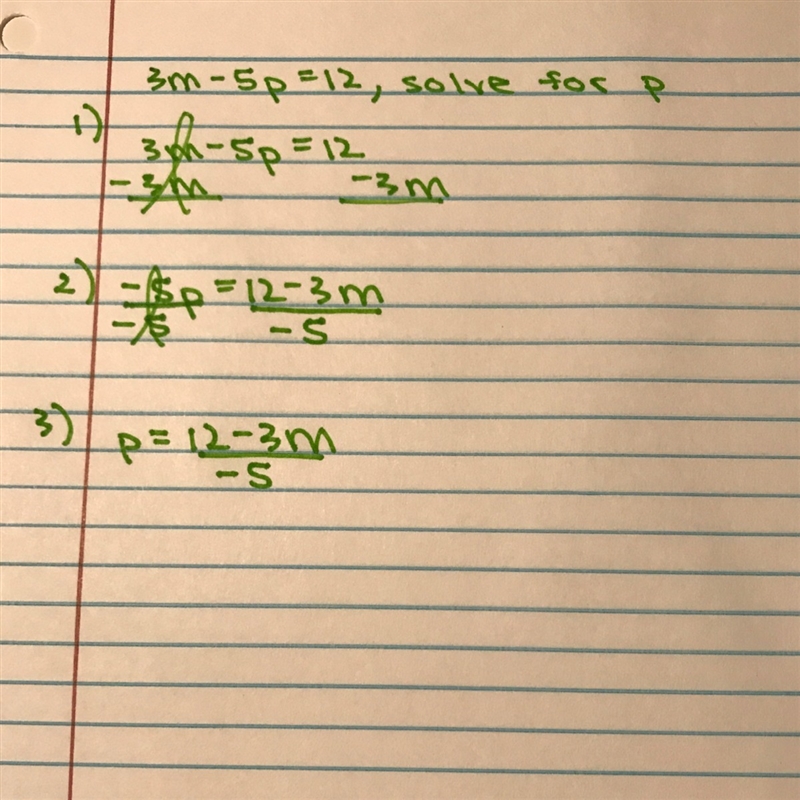 3m - 5p = 12, solve for p
1)
3m - 5p = 12
- 3m -3m
2) -5p = 12 - 3m
-5 -5
3) p = 12 - 3m
-5